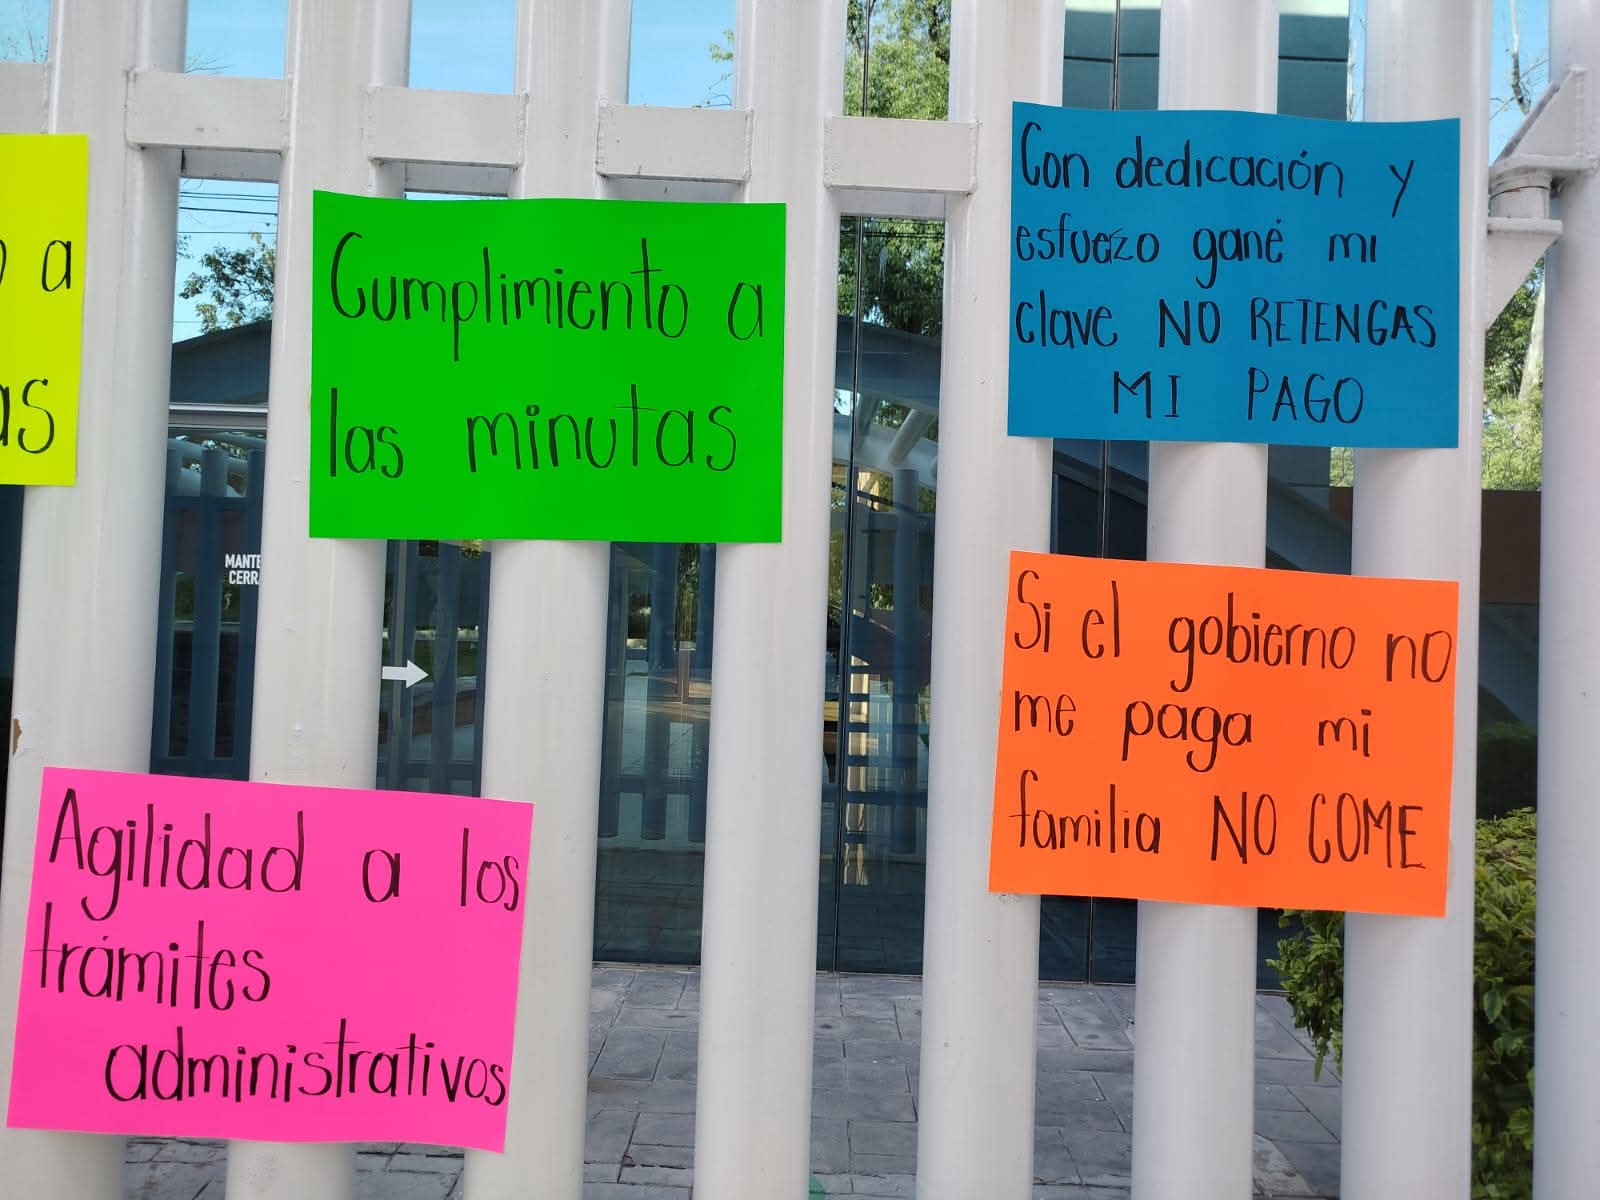 a
as
Cumplimiento a
las minutas
Con dedicación y
esfuerzo gané mi
clave NO RETENGAS
MI PAGO
Si el gobierno no
me paga mi
familia NO COME
Agilidad a los
trámites
administrativos
MANTE
CERR